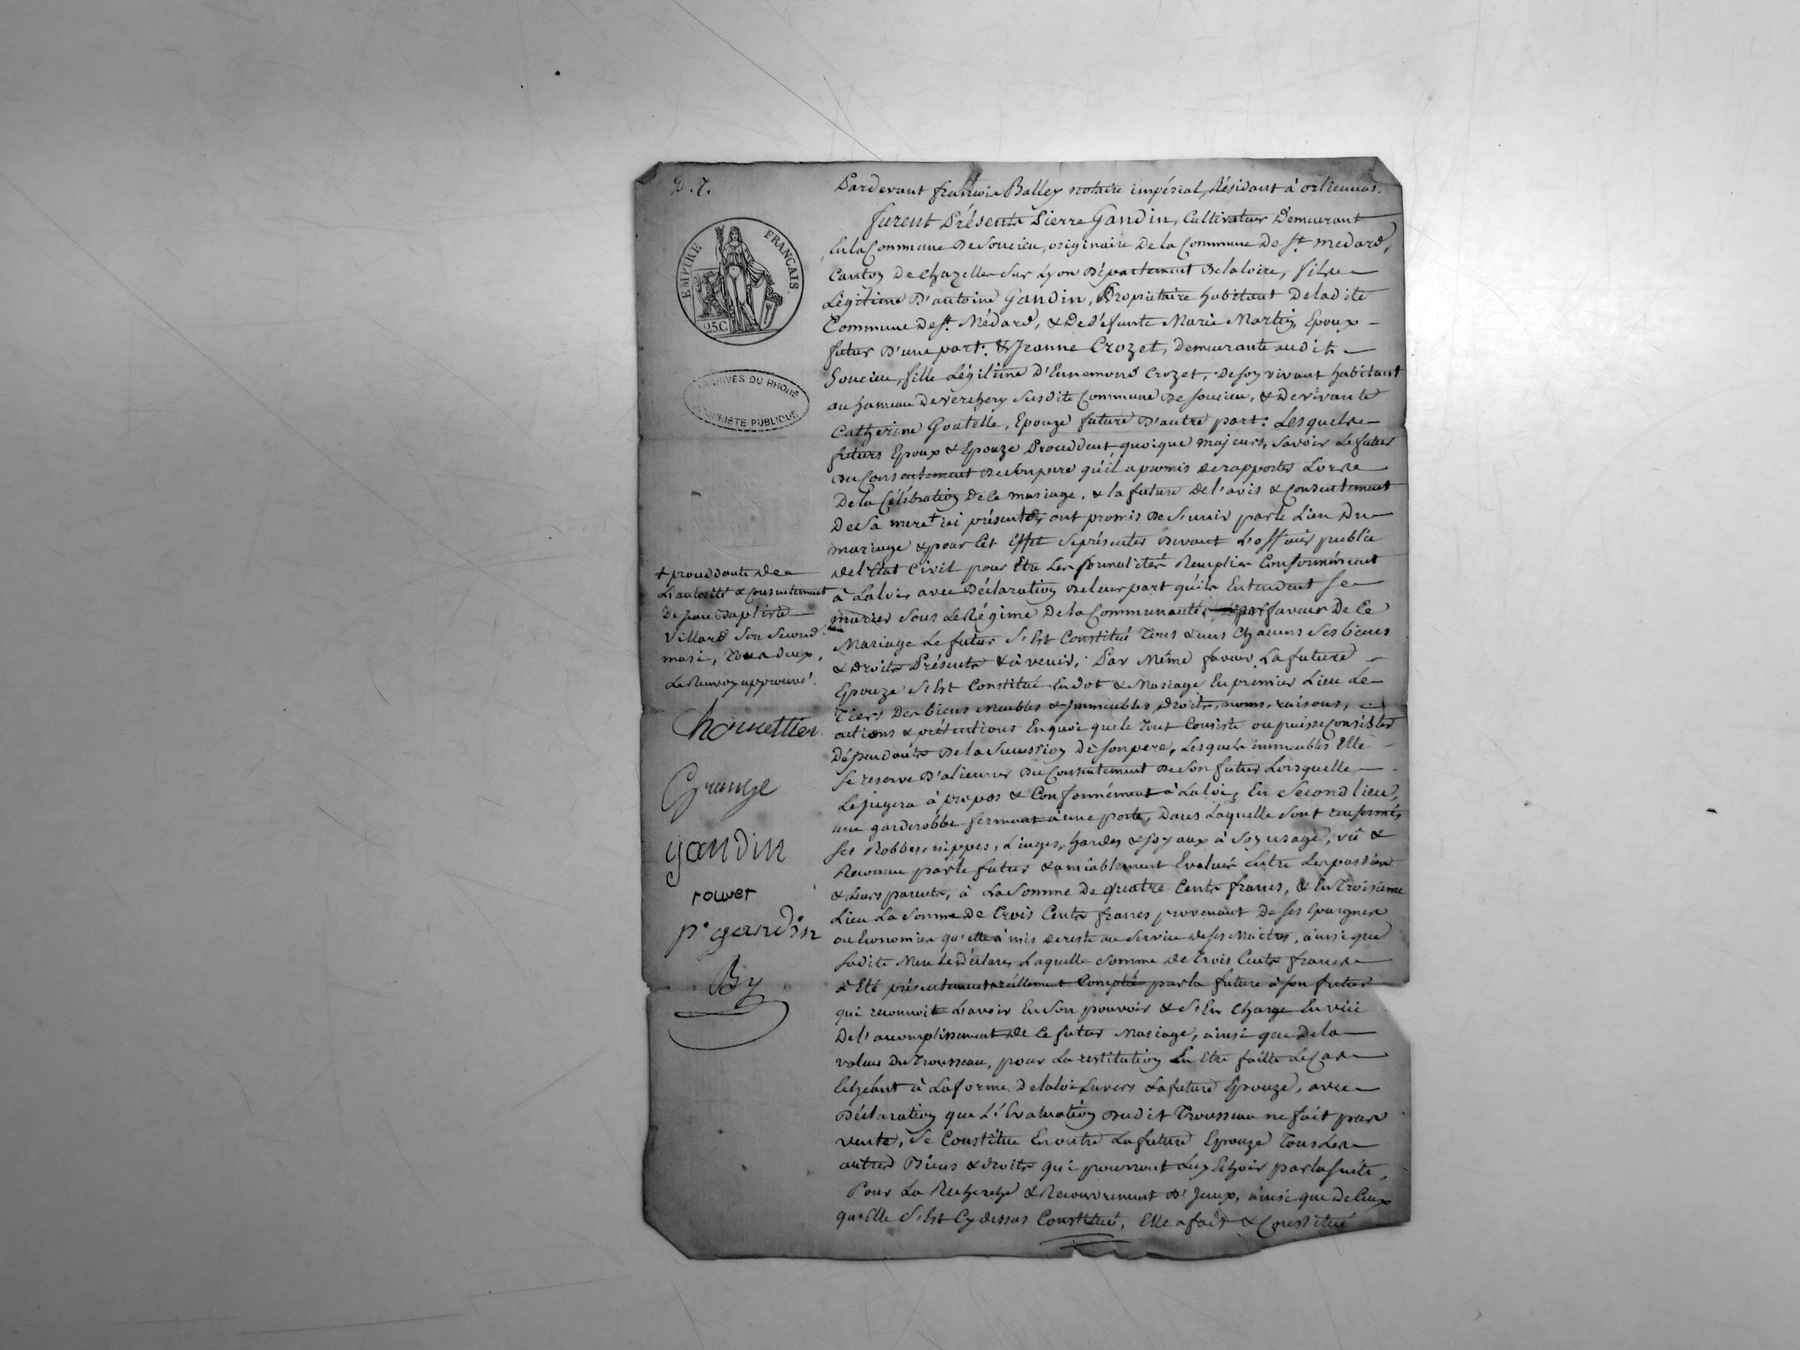 D. 7.
EMPIRE FRANÇAIS.
25 C.
ARCHIVES DU RHÔNE
PROPRIÉTÉ PUBLIQUE
Pardevant françois Balley notaire impérial, Résidant à orliennas.
furent Présents Pierre Gandin, Cultivateur Demeurant
en la Commune De Soucieu, originaire De la Commune De St. medard,
Canton De Chazelles Sur Lyon Département De la loire, fils
Légitime D'antoine Gandin, Propriétaire habitant De ladite
Commune De St. Médard, & De Défunte Marie Martin, Epoux
futur D'une part: & Jeanne Crozet, demeurante audit
Soucieu, fille Légitime D'Ennemond Crozet, De Son vivant habitant
au hameau De Verchery Susdite Commune De Soucieu, & De vivante
Catherine Goutelle, Epouze future D'autre part: Lesquels
futurs Epoux & Epouze Procédent, quoique majeurs, Savoir Le futur
Du Consentement De Son pere qu'il a promis De rapporter Lors
De la Célébration De Ce mariage, & la future De l'avis & Consentement
De Sa mere + ici présents, ont promis De S'unir par le Lien Du
mariage & pour Cet Effet Se présenter Devant L'officier public
De l'Etat Civil pour Etre Les formalités Remplies Conformément
à La loi, avec Déclaration De leur part qu'ils Entendent Se
marier Sous Le Régime De la Communauté, par faveur De Ce
Mariage Le futur S'Est Constitué Tous & uns Chacuns Ses biens
& Droits Présents & à venir; Par Même faveur La future
Epouze S'Est Constitué En Dot & Mariage En premier Lieu Le
Tiers Des biens Meubles & Immeubles, Droits, noms, raisons,
actions & prétentions En quoi que le Tout Consiste ou puisse Consister
Dépendants De la Succession De Son pere, Lesquels immeubles Elle
Se reserve D'aliener Du Consentement De Son futur Lorsquelle
Le jugera à propos & Conformément à La loi; En Second lieu,
une garderobbe fermant à une porte, Dans Laquelle Sont renfermés
Ses Robbes, nippes, Linges, hardes & joyaux à Son usage, vu &
Reconnu par le futur & amiablement Evalués Entre Les parties
& Leurs parents, à La Somme De quatre Cents francs, & En Troisieme
Lieu La Somme De Trois Cents francs provenant De Ses Epargnes
ou Economies qu'elle à mis De reste au Service De Ses Maitres, ainsi que
Sadite Mere Le Déclare, Laquelle Somme De Trois Cents francs
à Eté présentement réellement Comptée par la future à Son futur
qui reconnoit L'avoir En Son pouvoir & S'En Charge En vue
De l'accomplissement De Ce futur Mariage, ainsi que De la
valeur Du Trousseau, pour La restitution En Etre faitte Le Cas
Echéant à La forme De la loi Envers La future Epouze, avec
Déclaration que L'Evaluation Dudit Trousseau ne fait pas
vente, Se Constitue En outre La future Epouze Tous Les
autres Biens & Droits qui pourront Luy Echoir par la Suite,
Pour La Recherche & Recouvrement D'Iceux, ainsi que De Ceux
qu'Elle S'Est Cy dessus Constitué, Elle a fait & Constitué
+ procédante De
L'autorité & Consentement
De Jean Baptiste
Villard Son Second
mari, Tous deux,
Le Renvoy approuvé.
Grange
gandin
rouwer
p. gandin
By